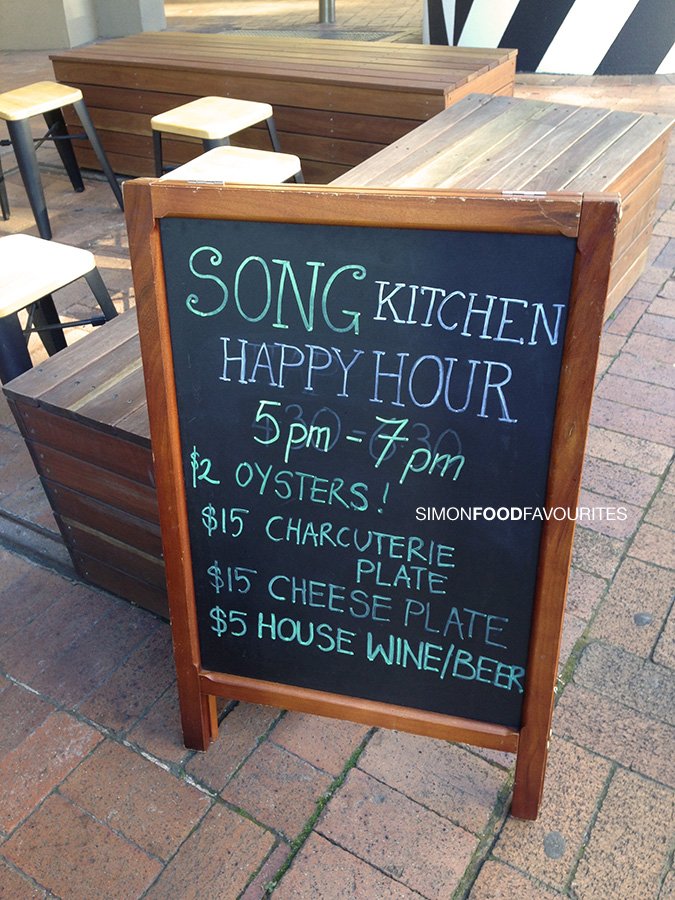 SONG KITCHEN
HAPPY HOUR
5pm - 7pm
$2 OYSTERS!
SIMONFOODFAVOURITES
$15 CHARCUTERIE
PLATE
$15 CHEESE PLATE
$5 HOUSE WINE/BEER